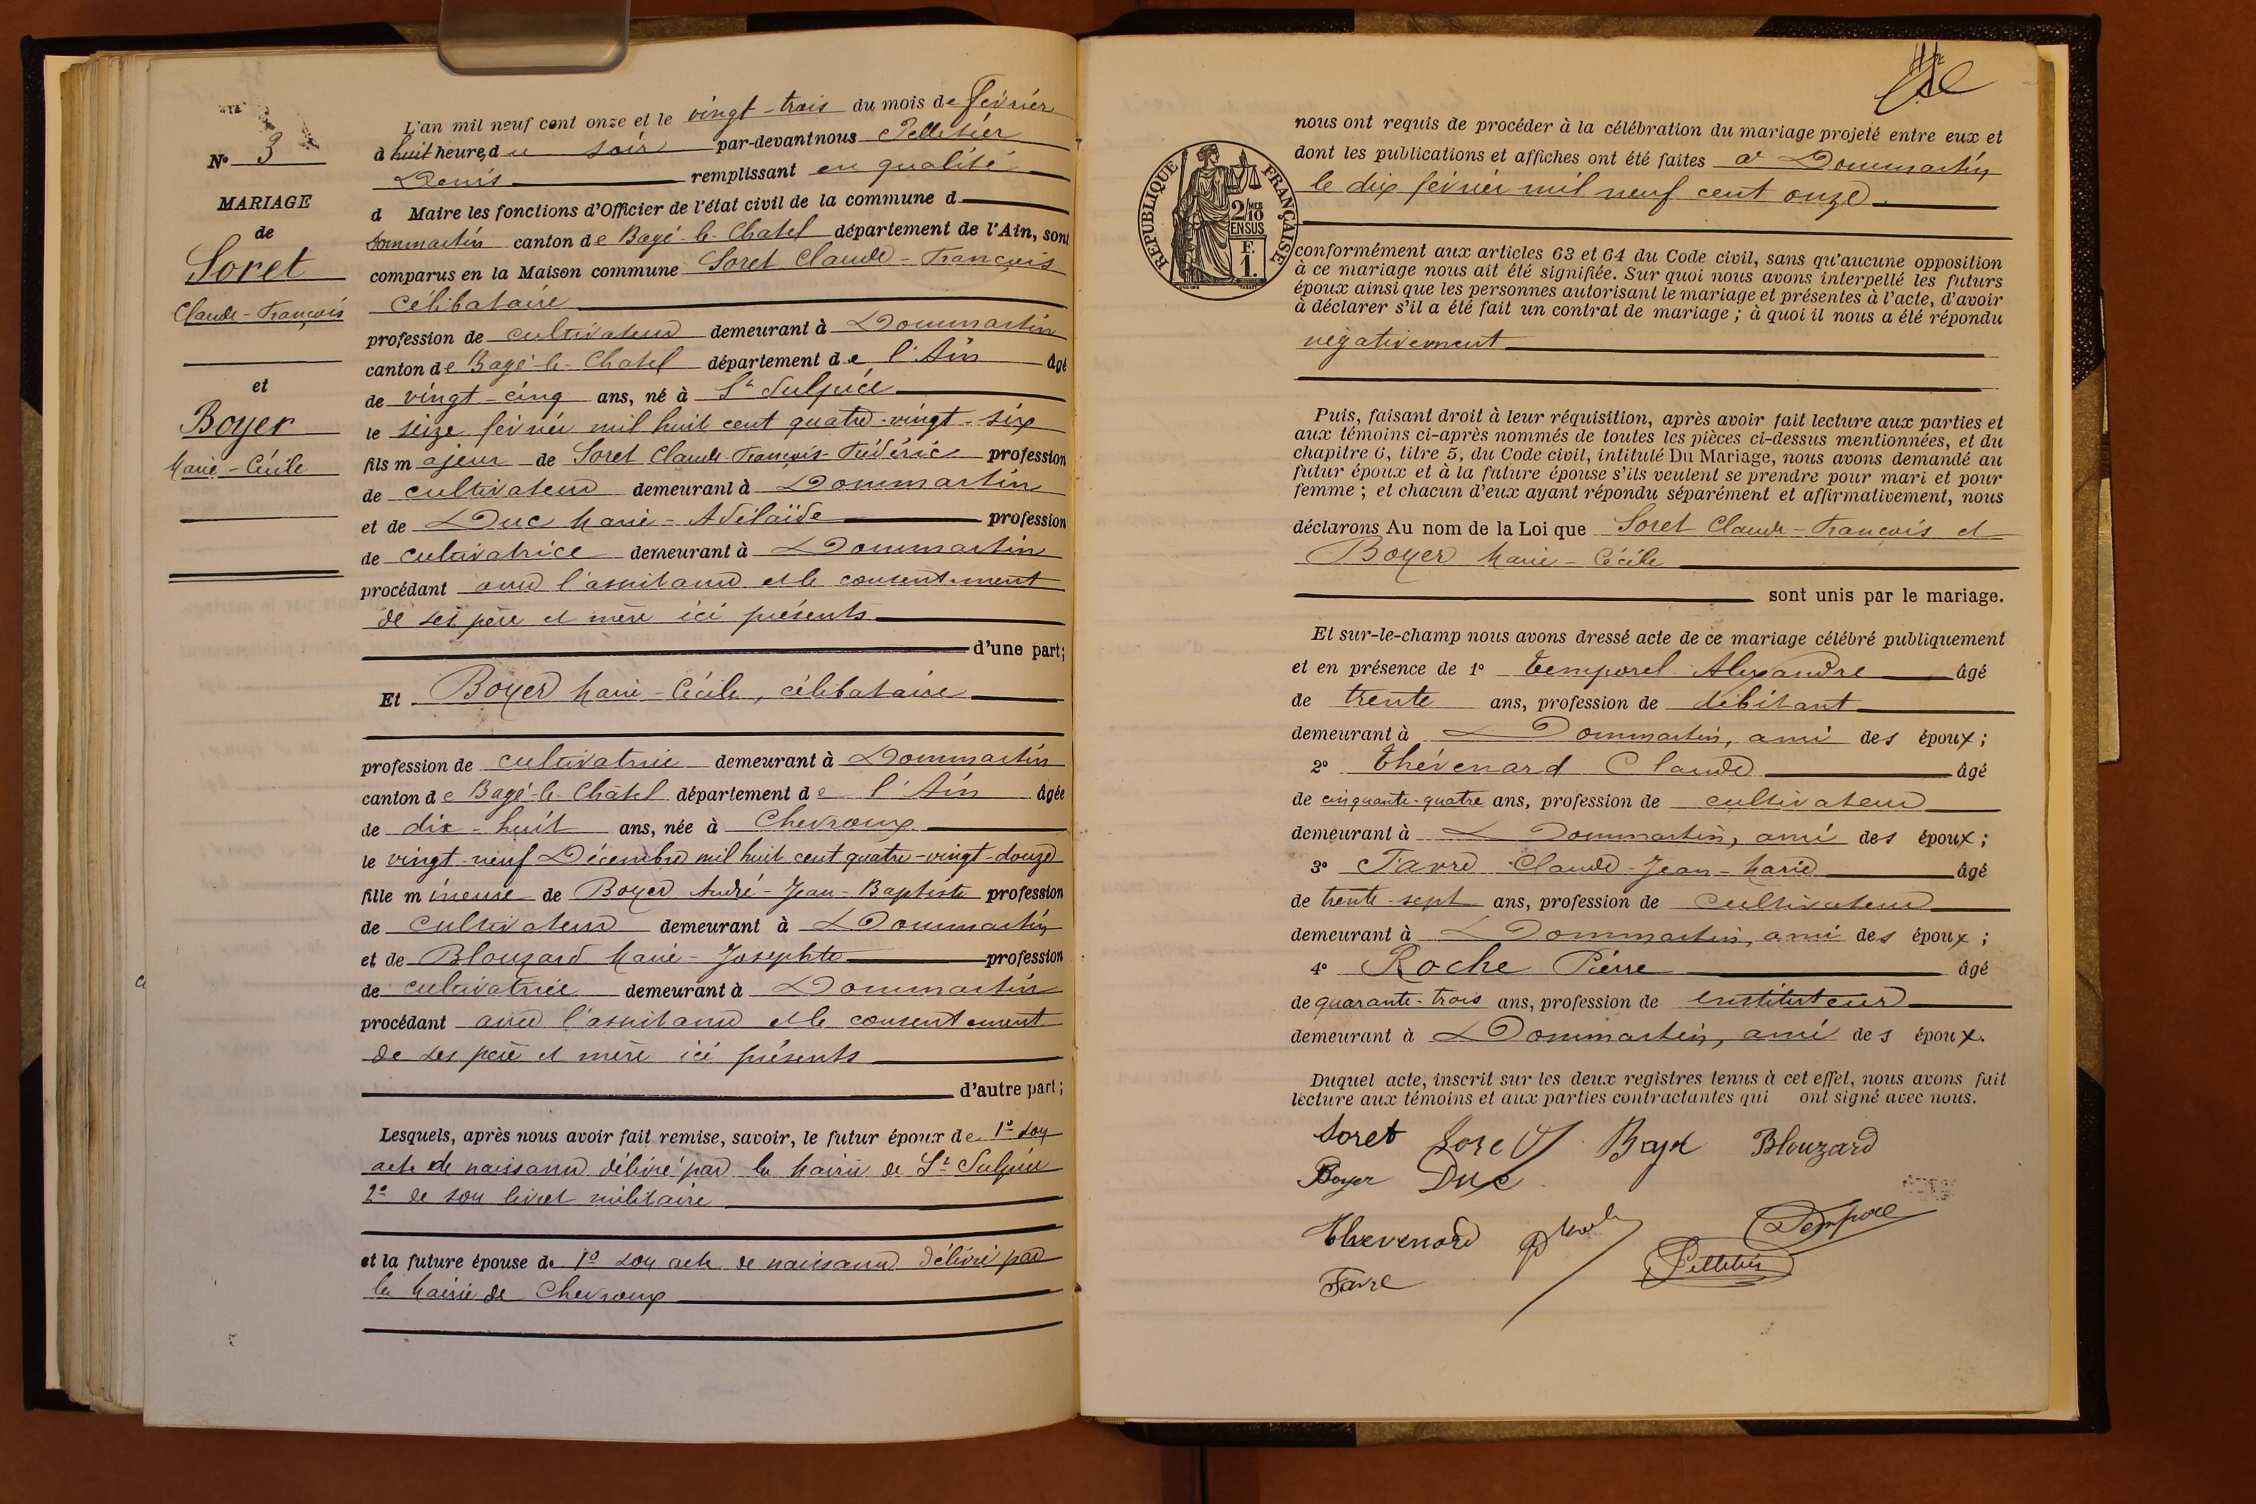 N° 3
MARIAGE
de
Soret
Claude-François
et
Boyer
Marie-Cécile
L'an mil neuf cent onze et le vingt-trois du mois de février
à huit heures du soir par-devant nous Pelletier
Denis remplissant en qualité
d Maire les fonctions d'Officier de l'état civil de la commune d
Dommartin canton de Bagé-le-Chatel département de l'Ain, sont
comparus en la Maison commune Soret Claude-François
célibataire
profession de cultivateur demeurant à Dommartin
canton de Bagé-le-Chatel département de l'Ain âgé
de vingt-cinq ans, né à St Sulpice
le seize février mil huit cent quatre-vingt-six
fils majeur de Soret Claude-François-Frédéric profession
de cultivateur demeurant à Dommartin
et de Duc Marie-Adélaïde profession
de cultivatrice demeurant à Dommartin
procédant avec l'assistance et le consentement
de ses père et mère ici présents
d'une part;
Et Boyer Marie-Cécile, célibataire
profession de cultivatrice demeurant à Dommartin
canton de Bagé-le-Châtel département de l'Ain âgée
de dix-huit ans, née à Chevroux
le vingt-neuf Décembre mil huit cent quatre-vingt-douze
fille mineure de Boyer André-Jean-Baptiste profession
de cultivateur demeurant à Dommartin
et de Blouzard Marie-Josephte profession
de cultivatrice demeurant à Dommartin
procédant avec l'assistance et le consentement
de ses père et mère ici présents
d'autre part;
Lesquels, après nous avoir fait remise, savoir, le futur époux de 1° son
acte de naissance délivré par la Mairie de St Sulpice
2° de son livret militaire
et la future épouse de 1° son acte de naissance délivré par
la Mairie de Chevroux
RÉPUBLIQUE FRANÇAISE
2/10 MES
EN SUS
F.
1.
nous ont requis de procéder à la célébration du mariage projeté entre eux et
dont les publications et affiches ont été faites à Dommartin
le dix février mil neuf cent onze.
conformément aux articles 63 et 64 du Code civil, sans qu'aucune opposition
à ce mariage nous ait été signifiée. Sur quoi nous avons interpellé les futurs
époux ainsi que les personnes autorisant le mariage et présentes à l'acte, d'avoir
à déclarer s'il a été fait un contrat de mariage; à quoi il nous a été répondu
négativement
Puis, faisant droit à leur réquisition, après avoir fait lecture aux parties et
aux témoins ci-après nommés de toutes les pièces ci-dessus mentionnées, et du
chapitre 6, titre 5, du Code civil, intitulé Du Mariage, nous avons demandé au
futur époux et à la future épouse s'ils veulent se prendre pour mari et pour
femme; et chacun d'eux ayant répondu séparément et affirmativement, nous
déclarons Au nom de la Loi que Soret Claude-François et
Boyer Marie-Cécile
sont unis par le mariage.
Et sur-le-champ nous avons dressé acte de ce mariage célébré publiquement
et en présence de 1° Temporel Alexandre âgé
de trente ans, profession de débitant
demeurant à Dommartin, ami des époux;
2° Thévenard Claude âgé
de cinquante-quatre ans, profession de cultivateur
demeurant à Dommartin, ami des époux;
3° Favre Claude-Jean-Marie âgé
de trente-sept ans, profession de cultivateur
demeurant à Dommartin, ami des époux;
4° Roche Pierre âgé
de quarante-trois ans, profession de instituteur
demeurant à Dommartin, ami des époux.
Duquel acte, inscrit sur les deux registres tenus à cet effet, nous avons fait
lecture aux témoins et aux parties contractantes qui ont signé avec nous.
Soret Soret Boyer Blouzard
Boyer Duc
Thevenard Temporel
Pelletier
Favre